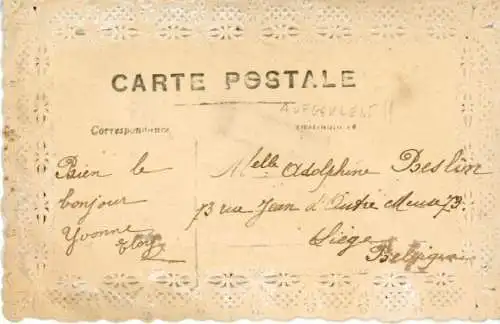 CARTE POSTALE
AUFGEKLEBT!!
Correspondance
Bien le
bonjour
Yvonne
Melle Adolphine Beslin
73 rue Jean d'Outre Meuse 73
Liège
Belgique